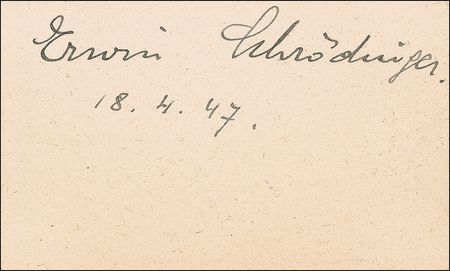 Erwin Schrödinger.
18. 4. 47.